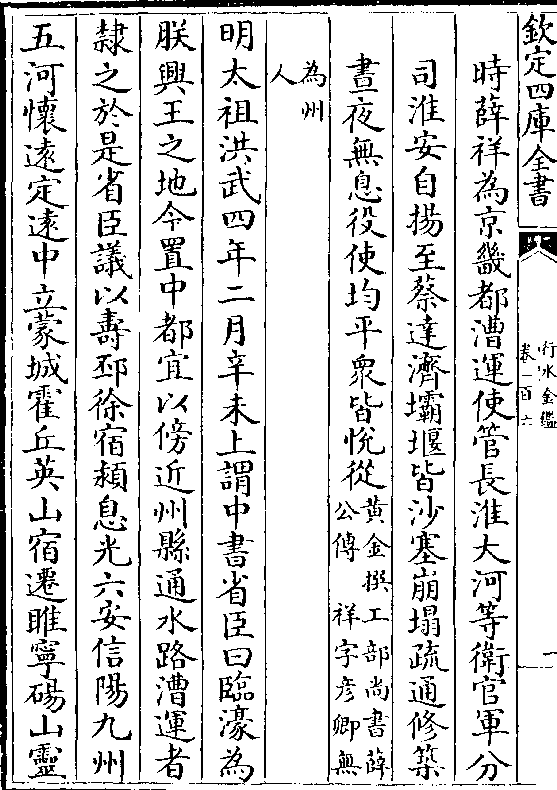 欽定四庫全書
行水金鑑
卷一百六
一
時薛祥為京畿都漕運使管長淮大河等衛官軍分
司淮安自揚至蔡達濟壩堰皆沙塞崩塌疏通修築
晝夜無息役使均平衆皆悅從黃金撰工部尚書薛
公傳 祥字彥卿無
為州
人
明太祖洪武四年二月辛未上謂中書省臣曰臨濠為
朕興王之地今置中都宜以傍近州縣通水路漕運者
隸之於是省臣議以壽邳徐宿潁息光六安信陽九州
五河懷遠定遠中立蒙城霍丘英山宿遷睢寧碭山靈